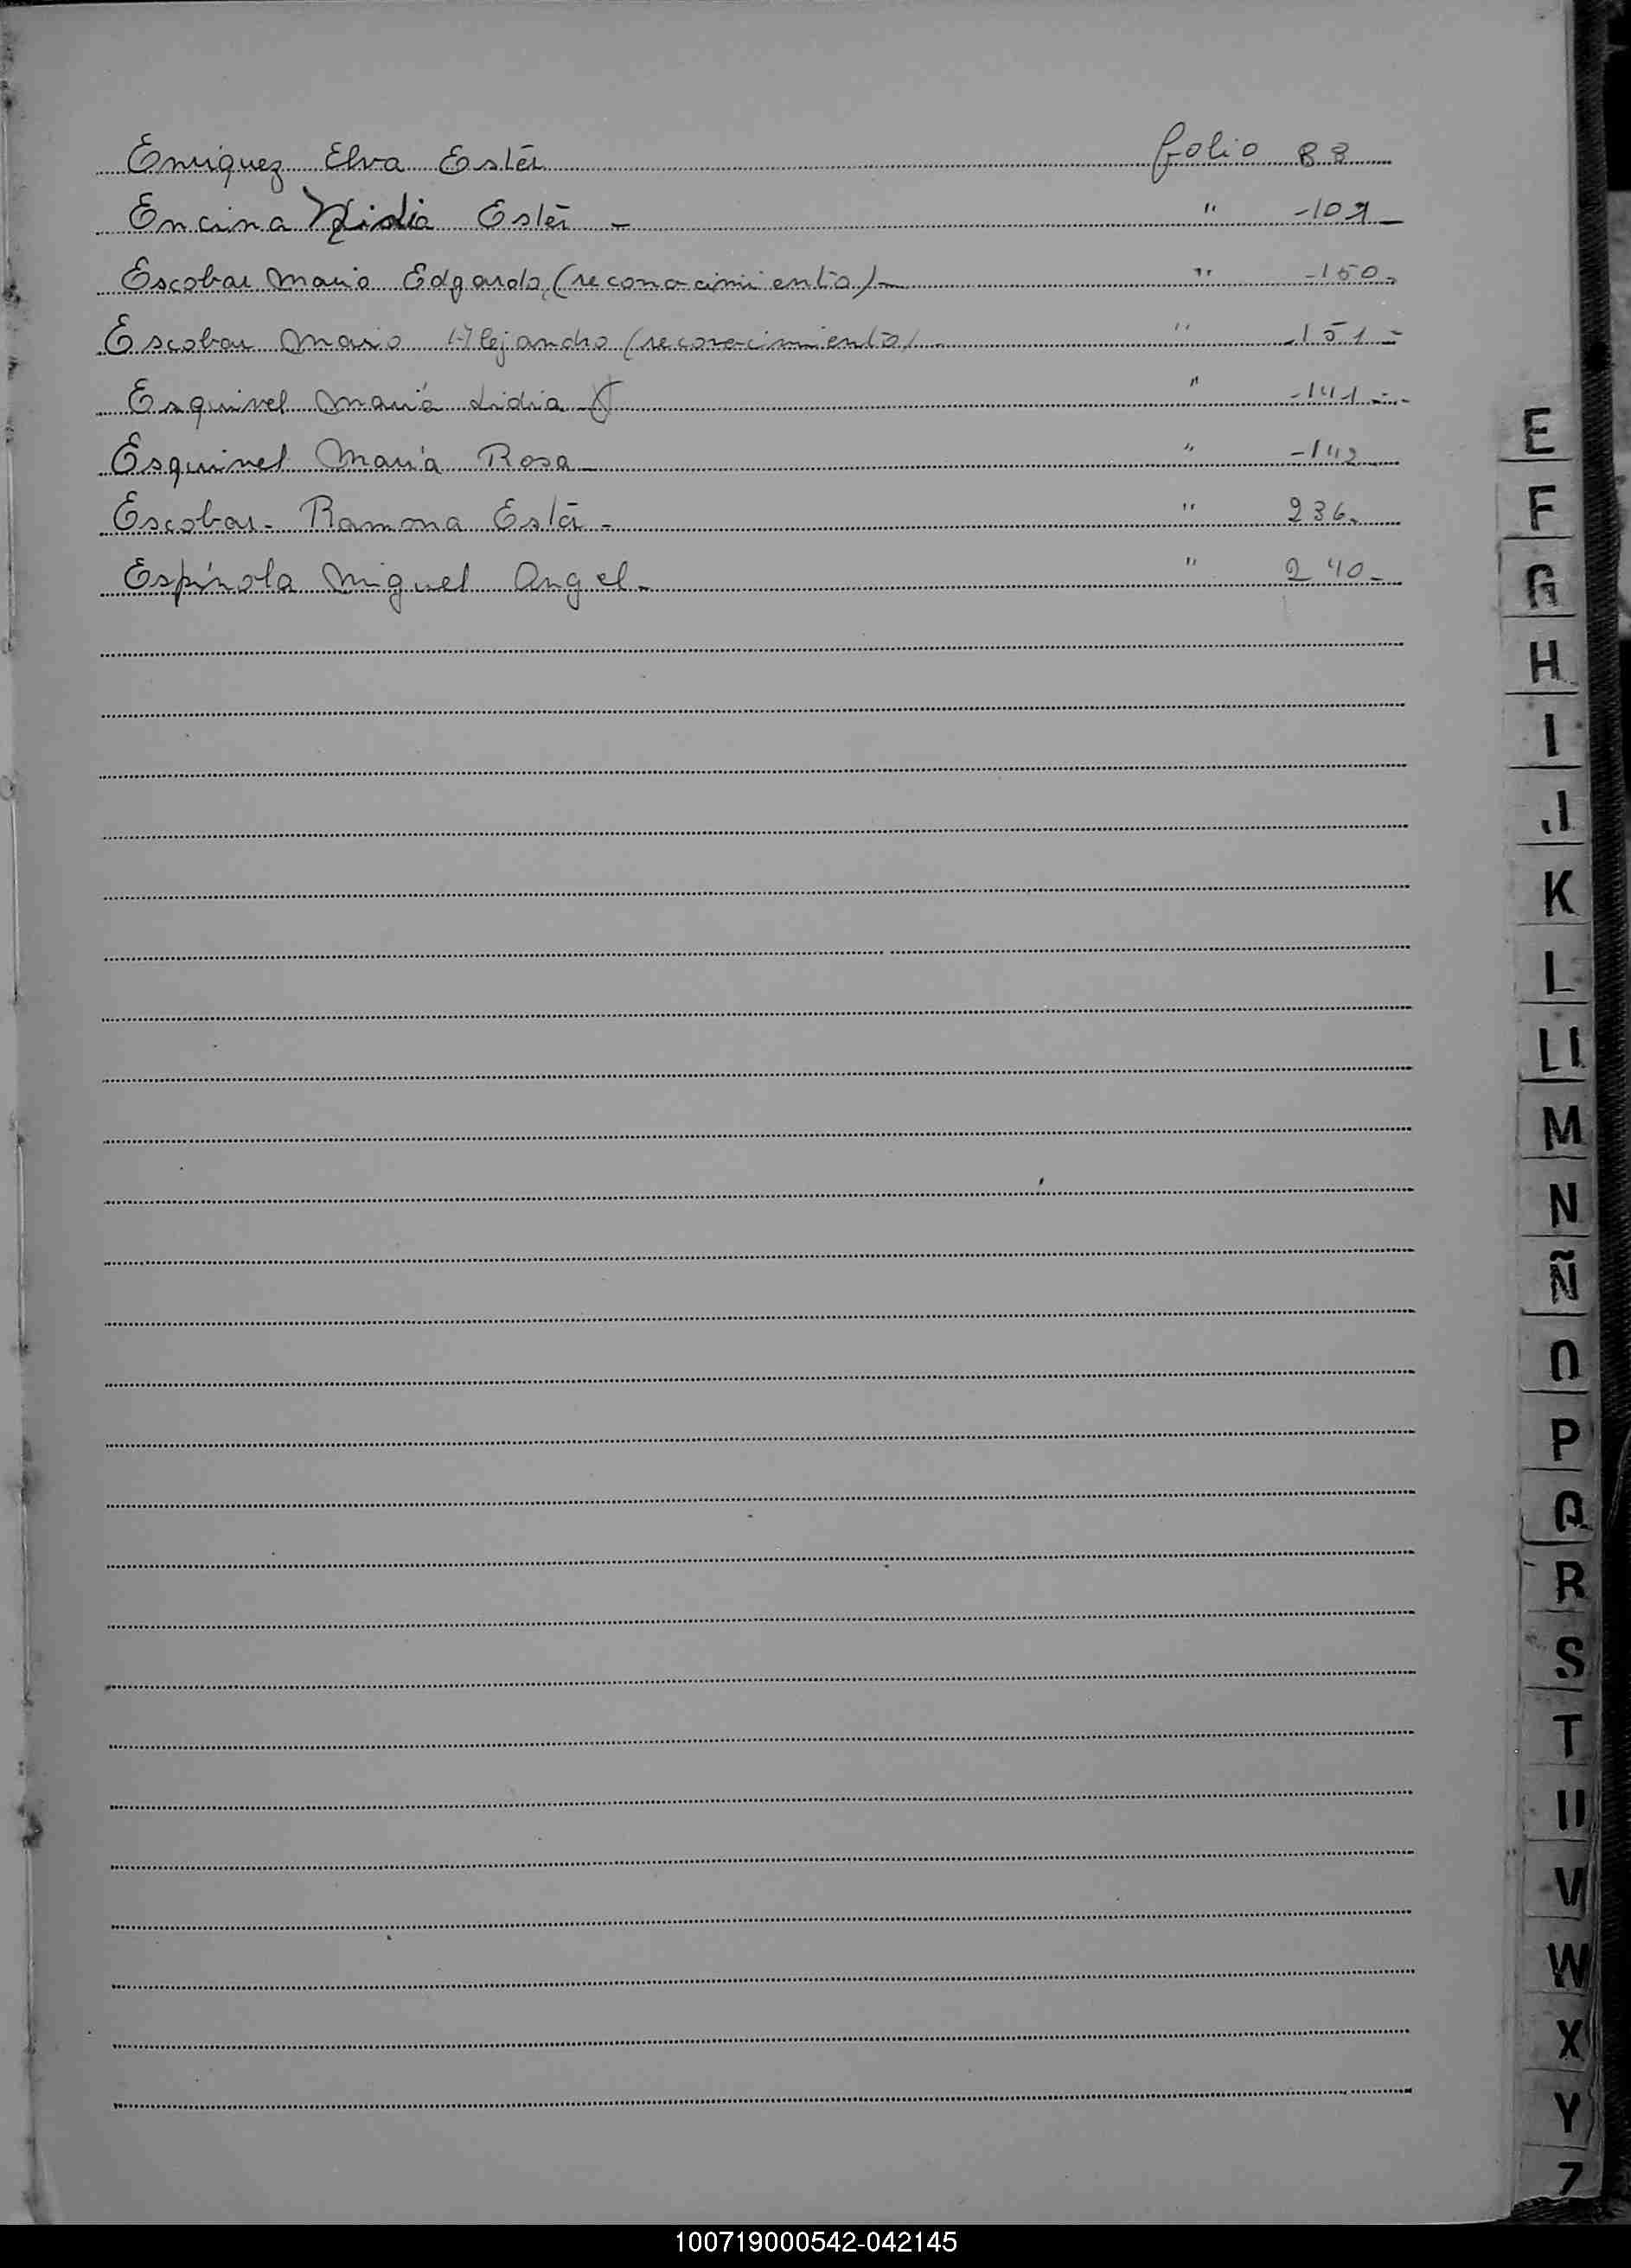 Enriquez Elva Estér folio 88
Encina Nidia Estér - " -109-
Escobar Mario Edgardo (reconocimiento)- " -150-
Escobar Mario Alejandro (reconocimiento) - " -151-
Esquivel María Lidia " -141-
Esquivel María Rosa " -142
Escobar - Ramona Estér - " 236.
Espínola Miguel Angel - " 240-
E
F
G
H
I
J
K
L
Ll
M
N
Ñ
O
P
Q
R
S
T
U
V
W
X
Y
Z
100719000542-042145